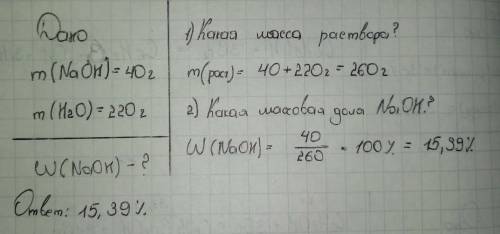 Дано
m(NaOH)=40г
m(H2O)=220г
W(NaOH)-?
Ответ: 15,39%
1) Какая масса раствора?
m(рас)= 40+220г=260г
2) Какая массовая доля NaOH?
W(NaOH)= 40/260 · 100% = 15,39%